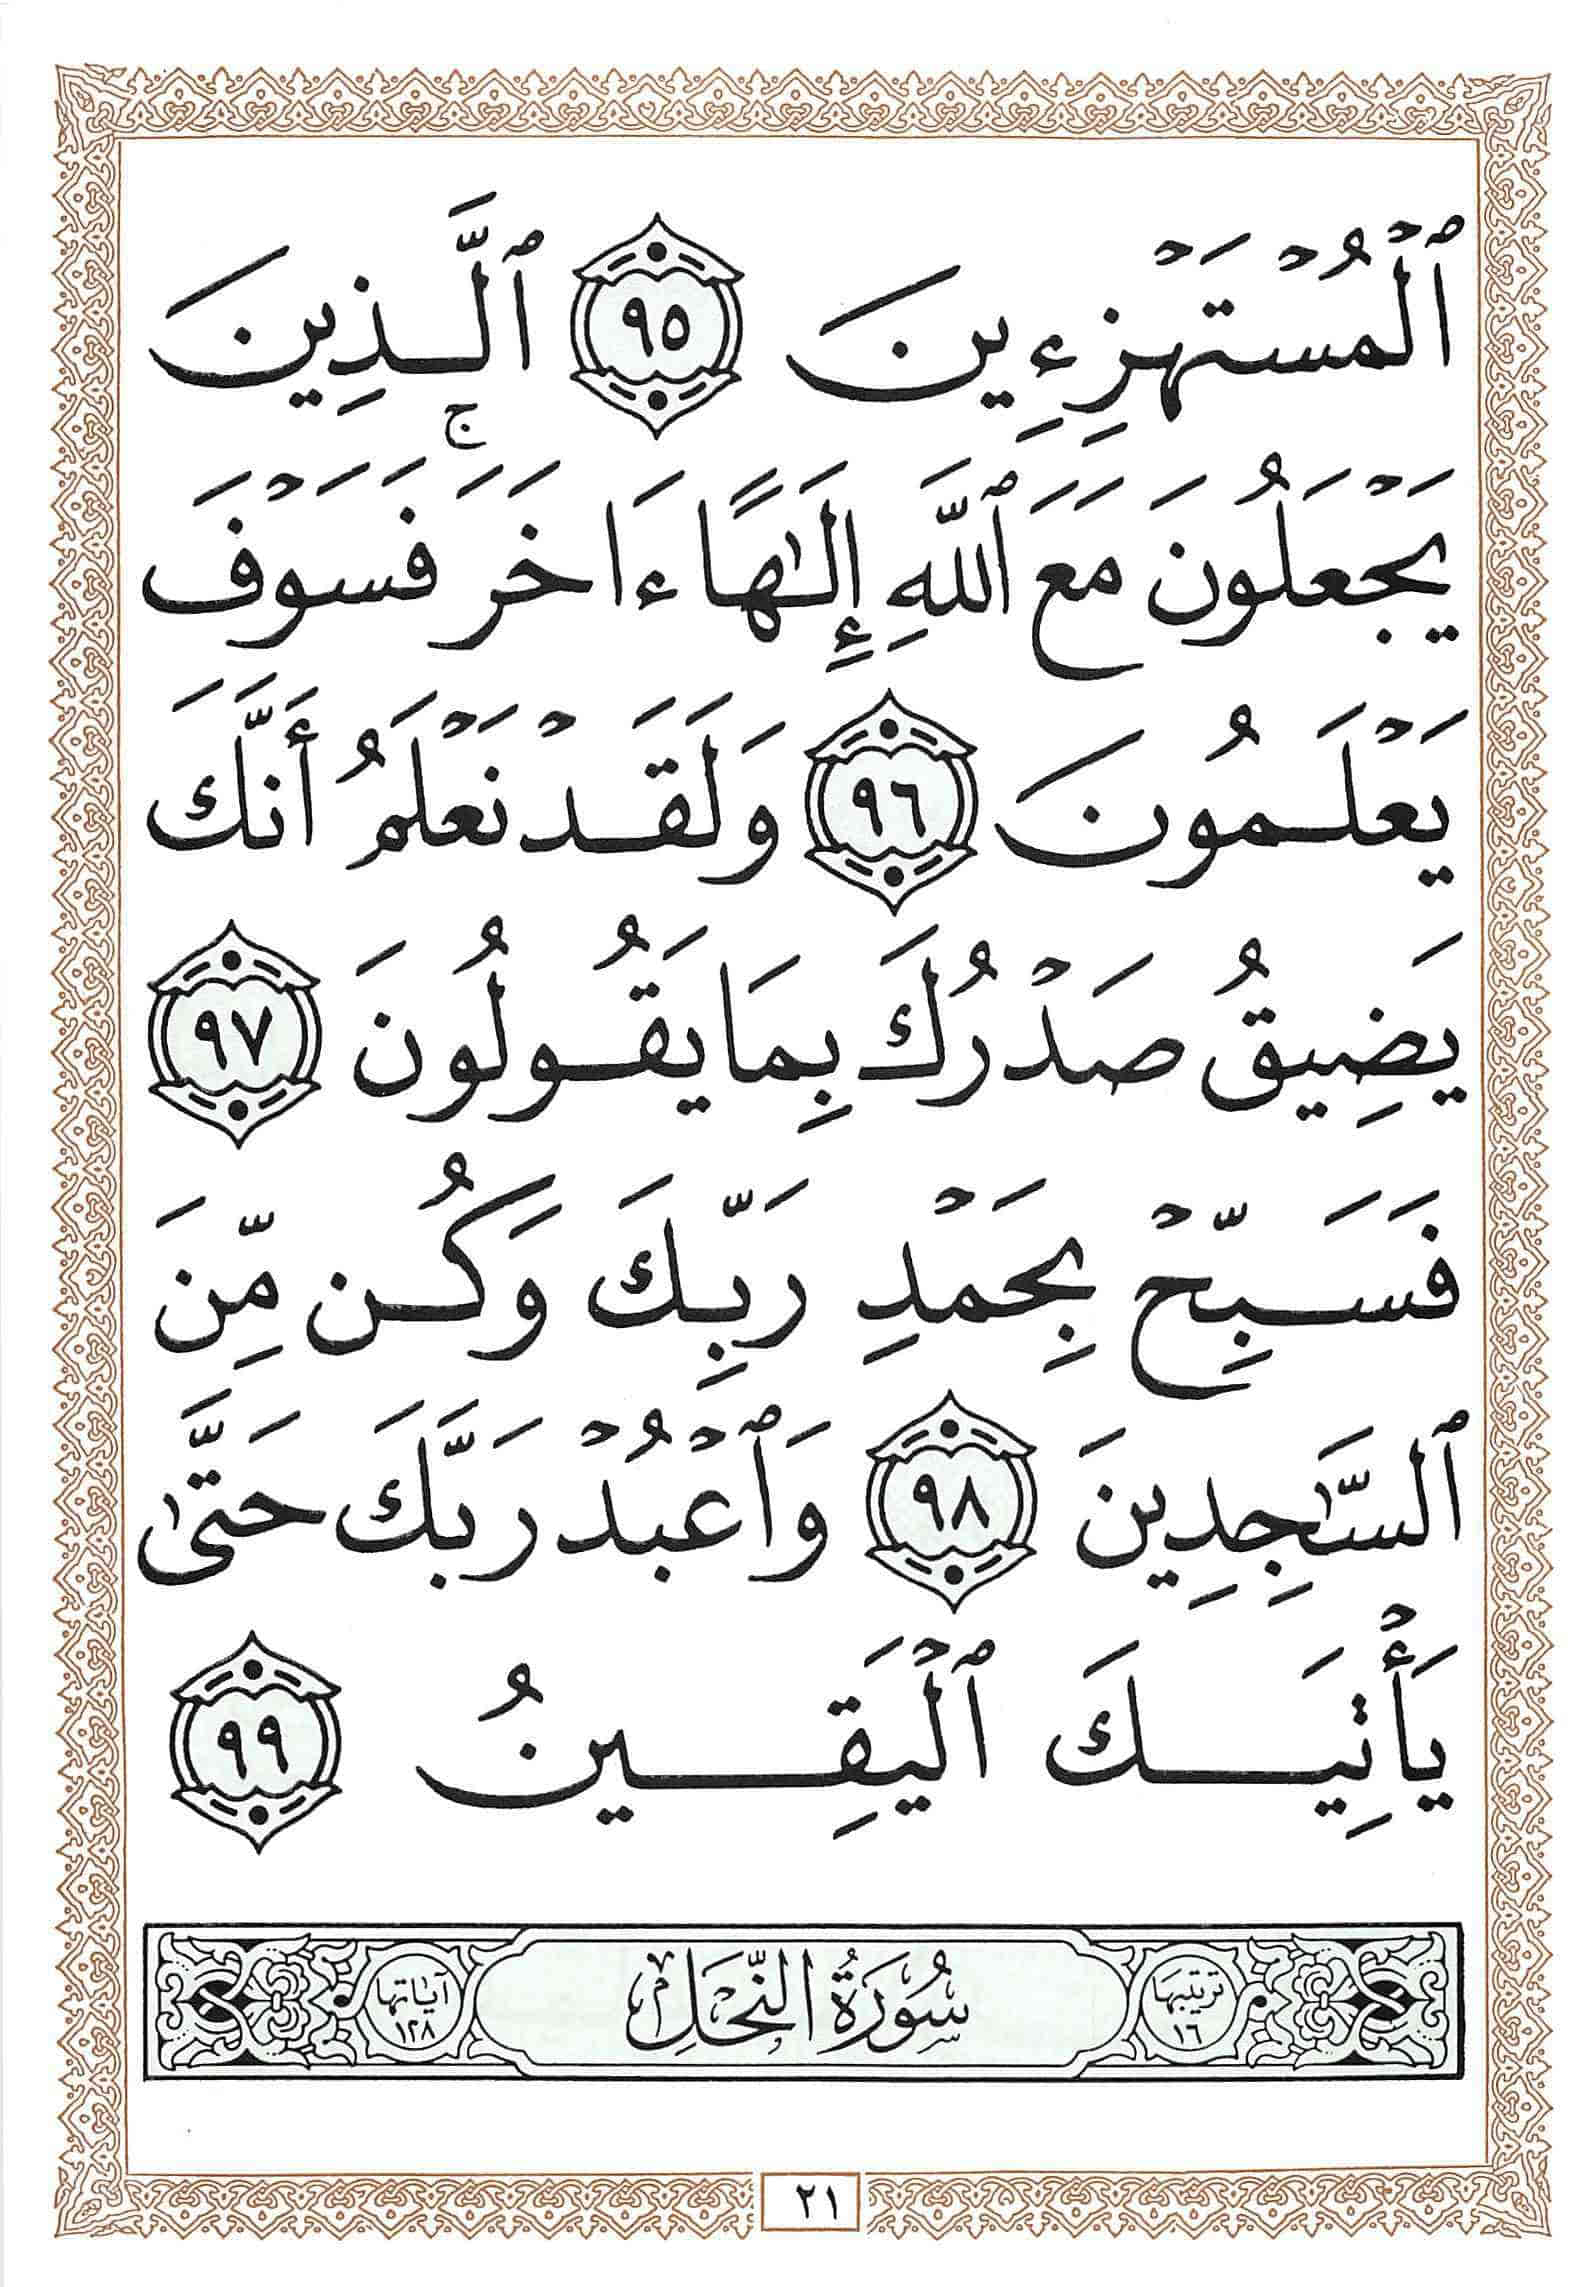 ٱلْمُسْتَهْزِءِينَ ٩٥ ٱلَّذِينَ
يَجْعَلُونَ مَعَ ٱللَّهِ إِلَٰهًا ءَاخَرَ ۚ فَسَوْفَ
يَعْلَمُونَ ٩٦ وَلَقَدْ نَعْلَمُ أَنَّكَ
يَضِيقُ صَدْرُكَ بِمَا يَقُولُونَ ٩٧
فَسَبِّحْ بِحَمْدِ رَبِّكَ وَكُن مِّنَ
ٱلسَّٰجِدِينَ ٩٨ وَٱعْبُدْ رَبَّكَ حَتَّىٰ
يَأْتِيَكَ ٱلْيَقِينُ ٩٩
ترتيبها ١٦ سُورَةُ النَّحْلِ آياتها ١٢٨
٢١